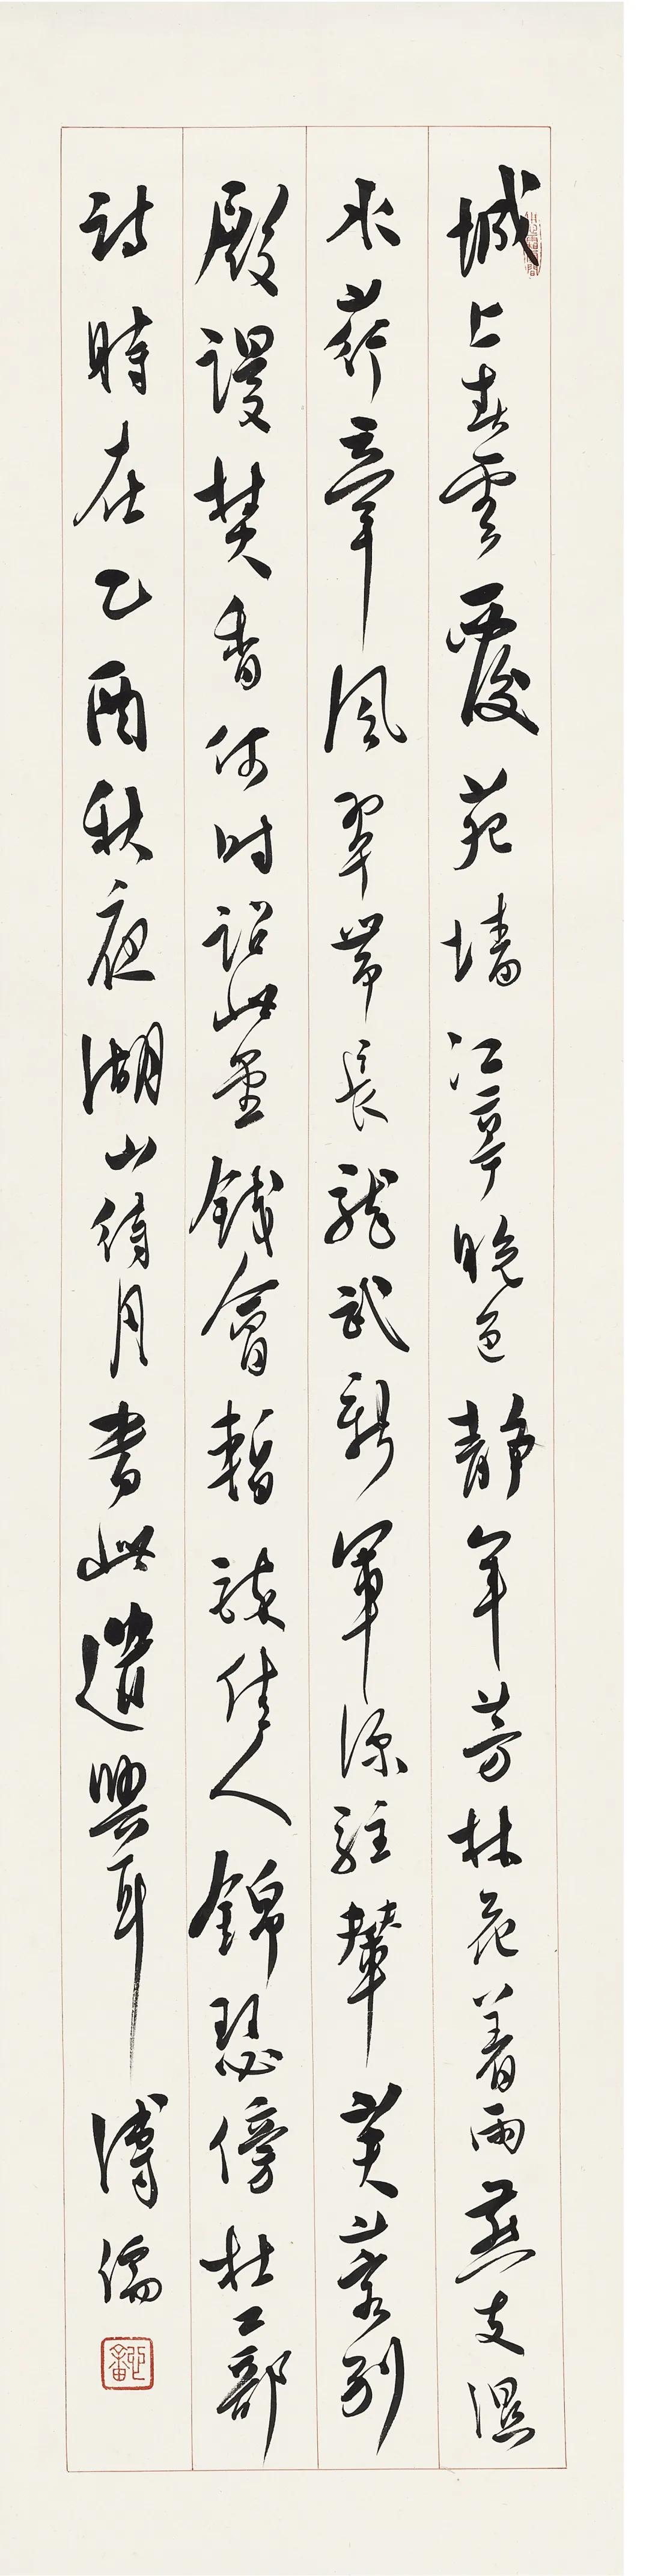 城上春雲覆苑墻江亭晚色靜年芳林花着雨燕支濕
水荇牽風翠帶長龍武新軍深駐輦芙蓉別
殿謾焚香何時詔此金錢會暫醉佳人錦瑟傍杜工部
詩時在乙酉秋夜湖山待月書此遣興耳溥儒